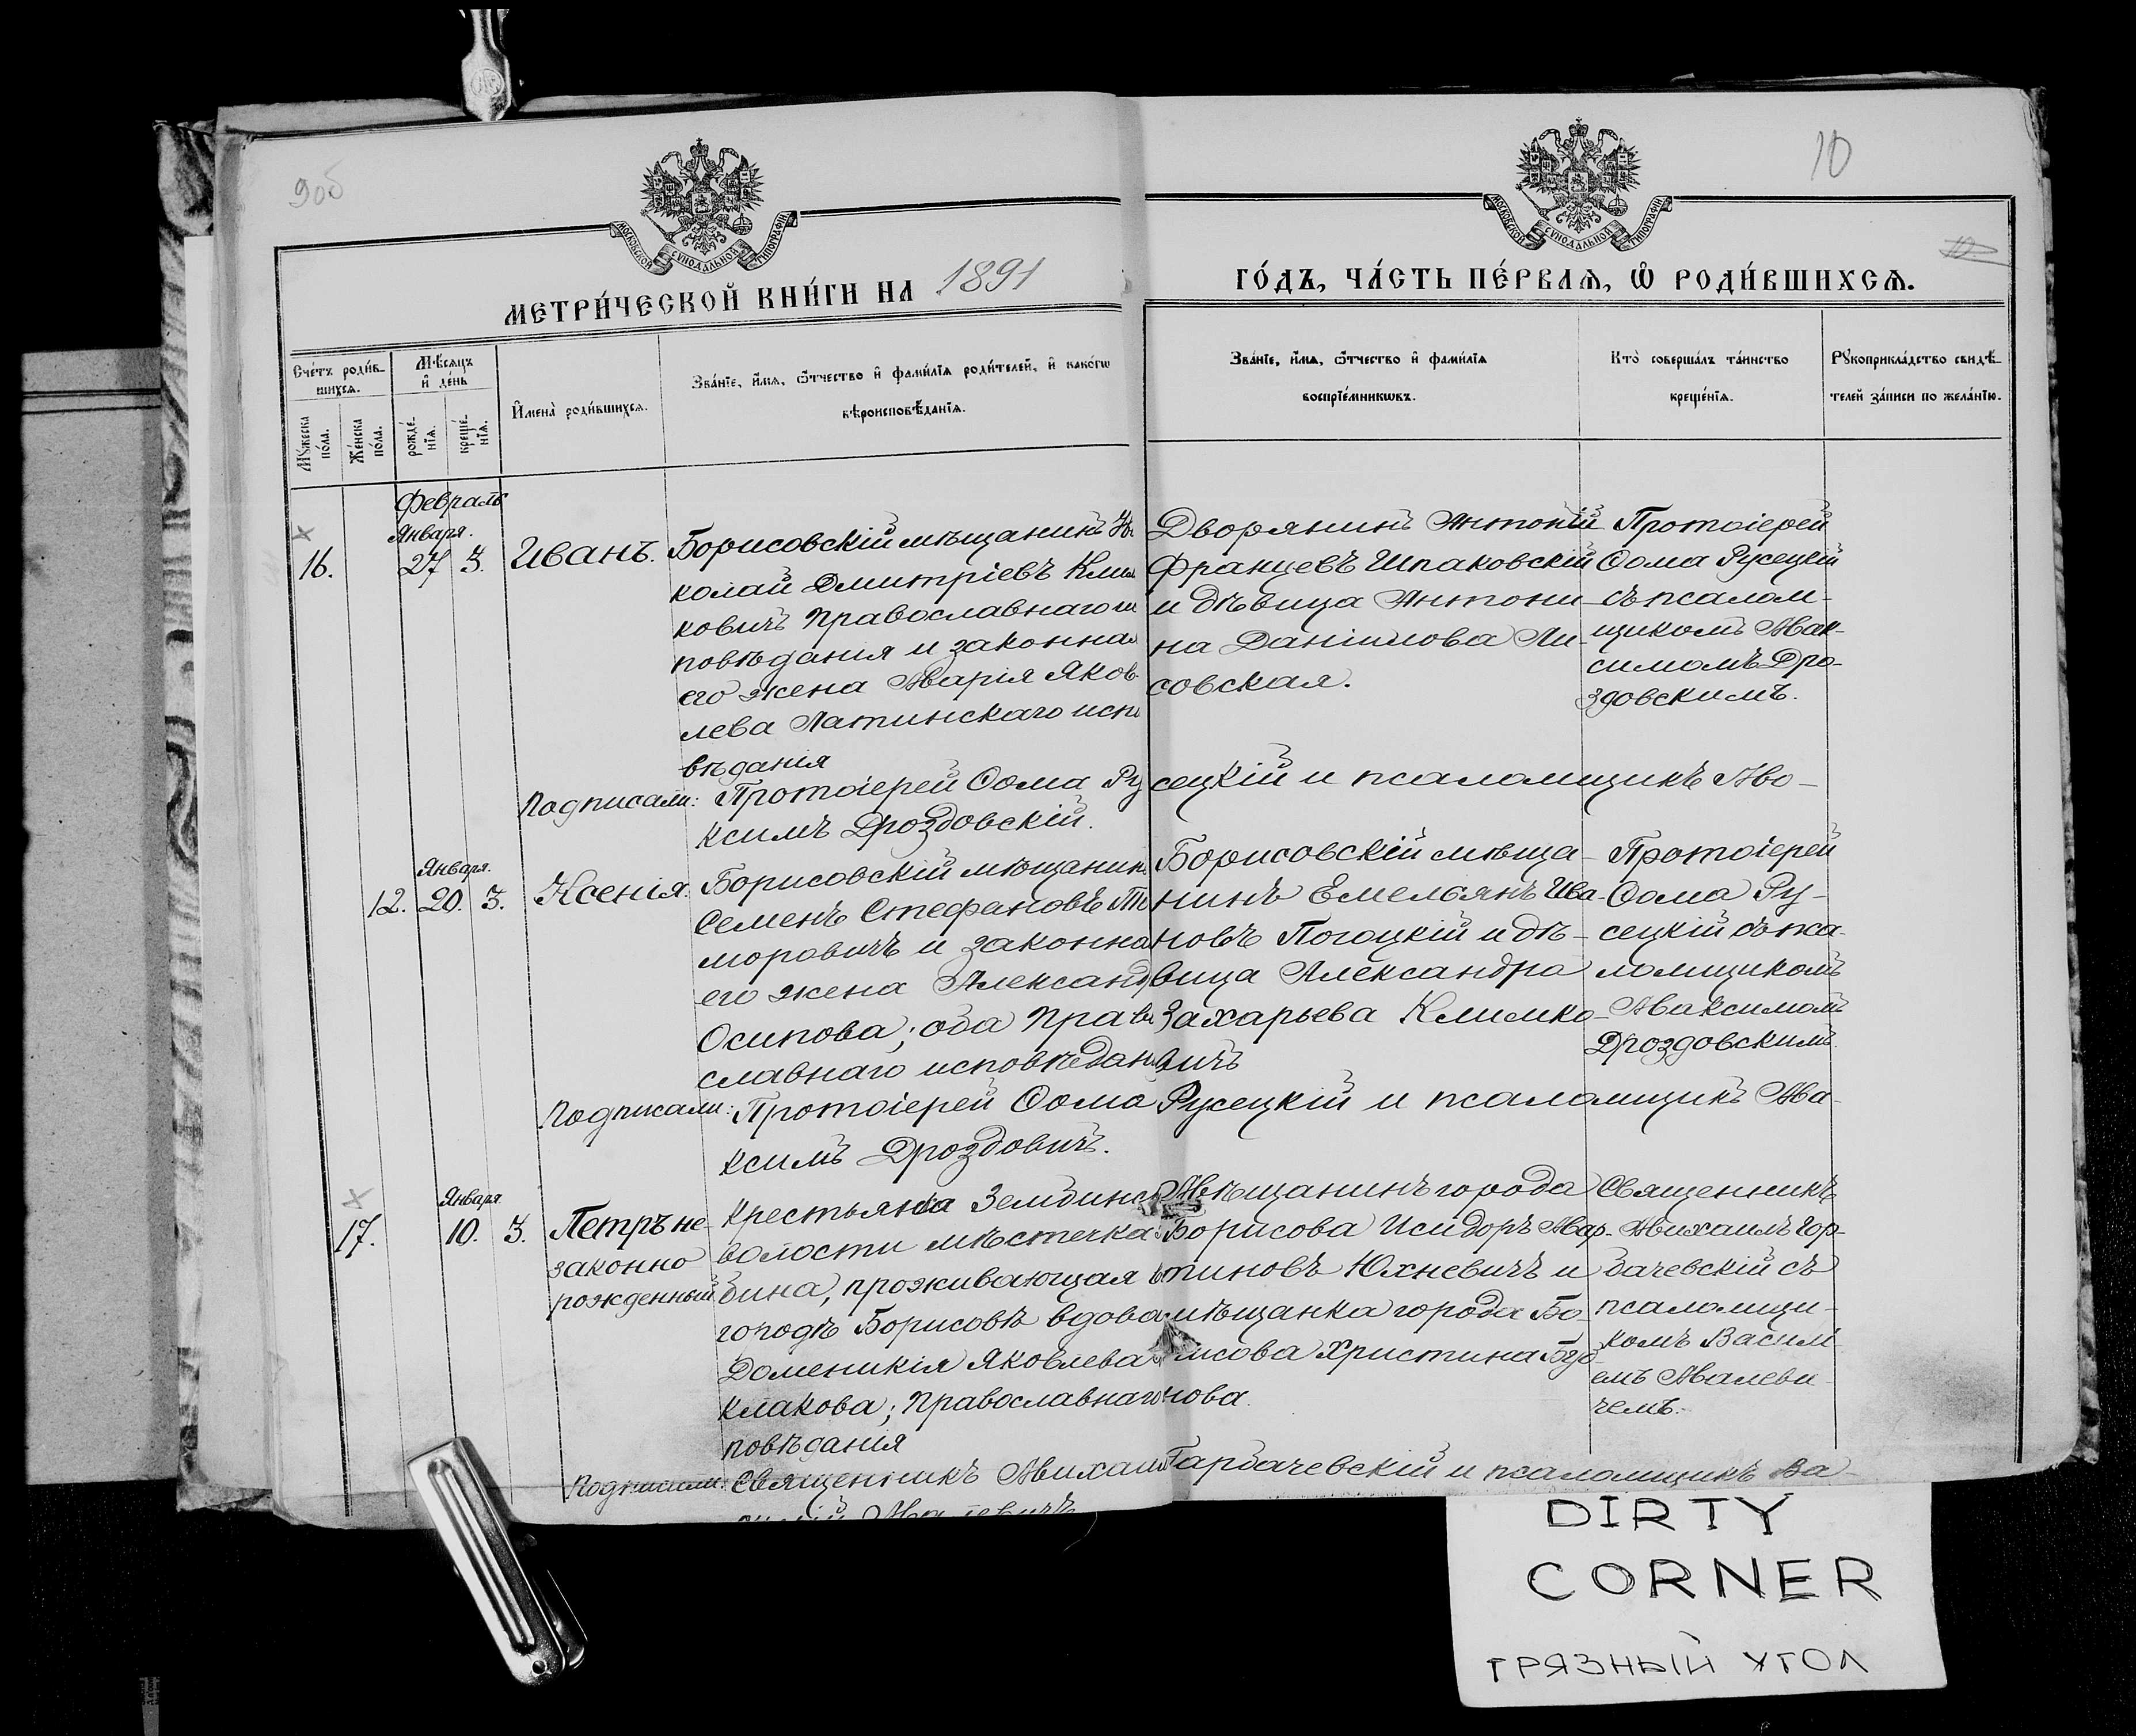 90б
10
10
МОСКОВСКОЙ СѴНОДАЛЬНОЙ ТИПОГРАФІИ
МОСКОВСКОЙ СѴНОДАЛЬНОЙ ТИПОГРАФІИ
МЕТРИ́ЧЕСКОЙ КНИ́ГИ НА 1891
ГО́ДЪ, ЧА́СТЬ ПЕ́РВАѦ, Ѿ РОДИ́ВШИХСѦ.
Сче́тъ роди́в-
шихсѧ.
Мꙋ́жеска
по́ла.
Же́нска
по́ла.
Мѣ́сѧцъ
и҆ де́нь
рожде́-
нїѧ.
креще́-
нїѧ.
И҆мена̀ роди́вшихсѧ.
Зва́нїе, и҆́мѧ, ѻ҆́тчество и҆ фами́лїѧ роди́телей, и҆ како́гѡ
вѣроисповѣ́данїѧ.
Зва́нїе, и҆́мѧ, ѻ҆́тчество и҆ фами́лїѧ
воспрїе́мникѡвъ.
Кто̀ соверша́лъ та́инство
креще́нїѧ.
Рꙋкоприкла́дство свидѣ́-
телей за́писи по жела́нїю.
Февраль
Января.
16.
27
3.
Иванъ.
Борисовскій мѣщанинъ Ни
колай Дмитріевъ Клим
ковичъ Православнаго ис
повѣданія и законная
его жена Марія Яков
лева Латинскаго испо
вѣданія
Дворянинъ Антоній
Францевъ Шпаковскій
и дѣвица Антони-
на Даніилова Ли-
совская.
Протоіерей
Ѳома Русецкій
съ псалом-
щикомъ Мак-
симомъ Дро-
здовскимъ.
Подписали: Протоіерей Ѳома Русецкій и псаломщикъ Ма-
ксимъ Дроздовскій.
Января.
12.
20.
3.
Ксенія.
Борисовскій мѣщанинъ
Семенъ Стефановъ Ти
моровичъ и законная
его жена Александра
Осипова; оба Право
славнаго исповѣданія
Борисовскій мѣща-
нинъ Емельянъ Ива-
новъ Погоцкій и дѣ-
вица Александра
Захарьева Климко-
вичъ
Протоіерей
Ѳома Ру-
сецкій съ пса-
ломщикомъ
Максимомъ
Дроздовскимъ.
Подписали: Протоіерей Ѳома Русецкій и псаломщикъ Ма-
ксимъ Дроздовичъ.
Января
17.
10.
3.
Петръ не-
законно
рожденный
Крестьянка Зембинской
волости мѣстечка Зем
бина, проживающая въ
городѣ Борисовѣ вдова
Доменикія Яковлева
Клакова; Православнаго ис
повѣданія
Мѣщанинъ города
Борисова Исидоръ Мар-
тиновъ Юхневичъ и
мѣщанка города Бо-
рисова Христина
нова.
Священникъ
Михаилъ Гор-
бачевскій съ
псаломщи-
комъ Васил-
емъ Малеви-
чемъ.
Подписали: Священникъ Михаилъ Гарбачевскій и псаломщикъ Ва-
силій Малевичъ
DIRTY
CORNER
ГРЯЗНЫЙ УГОЛ